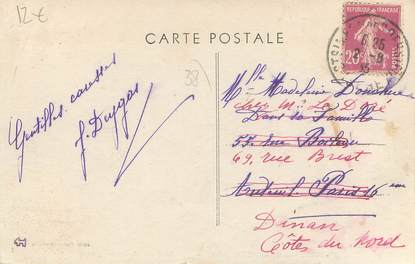 12€
CARTE POSTALE
38
RÉPUBLIQUE FRANÇAISE
20c
POSTES
Gentilles causses
J. Duygas
Mlle Madeleine Donichue
chez Mr Le Dozé
Dans sa famille
55, rue Boileau
49, rue Brest
Auteuil Paris 16e
Dinan
Côtes du Nord